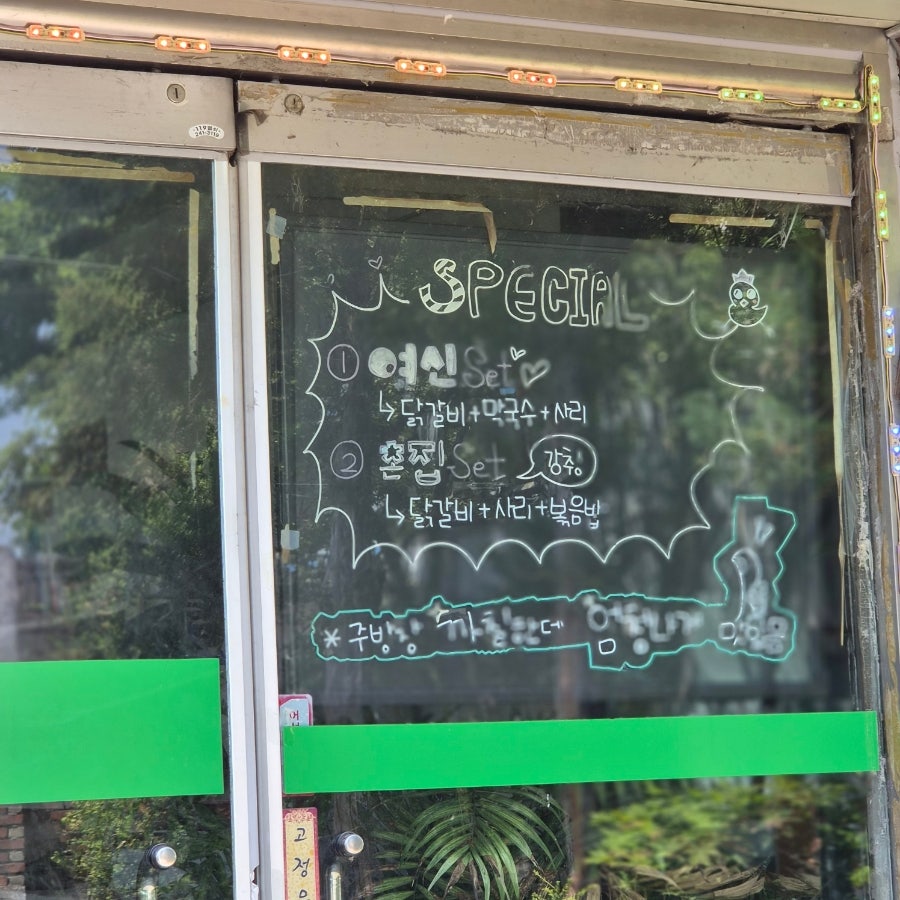 SPECIAL
① 여신 Set
↳ 닭갈비+막국수+사리
② 혼찝 Set 강추!
↳ 닭갈비+사리+볶음밥
* 주방장 까칠한데
고정